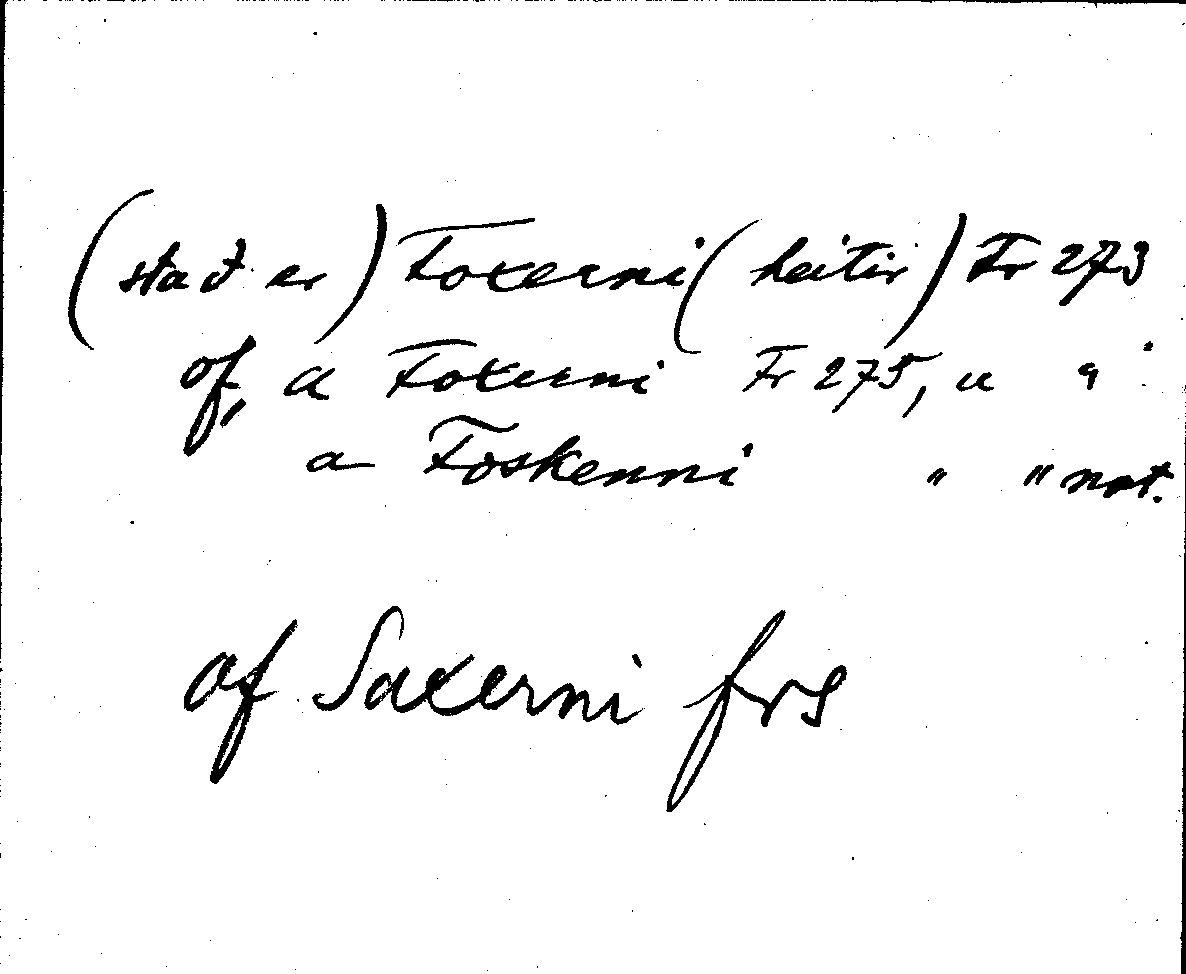 (stað er) Foxerni (heitir) Fr 273
cf, a Foxerni Fr 275, u
a Foskenni " " not.
cf Saxerni frs